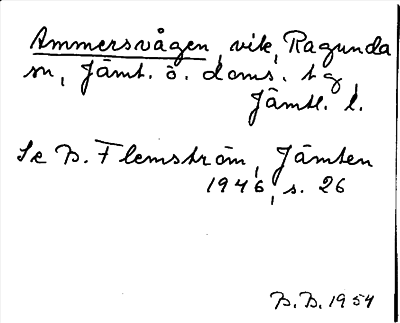 Ammersvågen, vik, Ragunda
sn, Jämt. ö. doms. tg,
Jämtl. l.
Se B. Flemström, Jämten
1946, s. 26
B. B. 1954